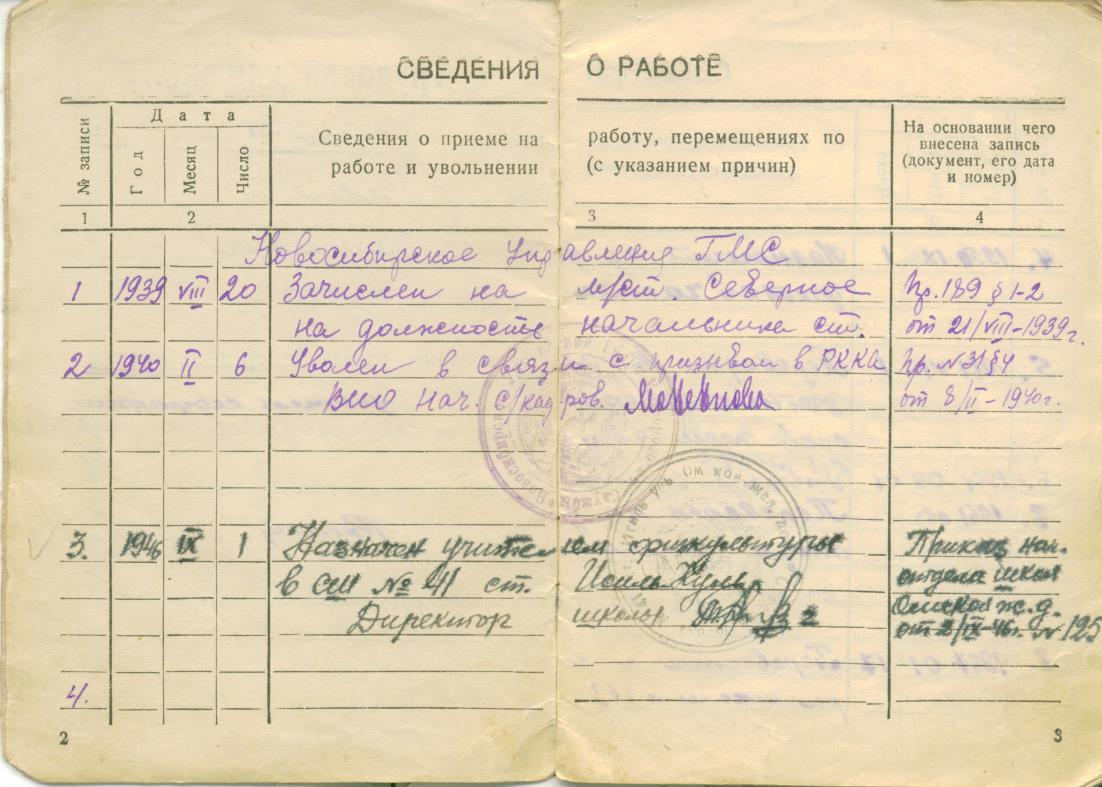 СВЕДЕНИЯ О РАБОТЕ
№ записи
Дата
Год
Месяц
Число
Сведения о приеме на работу, перемещениях по
работе и увольнении (с указанием причин)
На основании чего
внесена запись
(документ, его дата
и номер)
1 2 3 4
Новосибирское Управление ГМС
1 1939 VIII 20 Зачислен на м/ст. Северное Пр. 189 § 1-2
на должность начальника ст. от 21/VIII-1939г.
2 1940 II 6 Уволен в связи с призывом в РККА Пр. № 31 § 4
ВИО нач. с/кадров. от 8/II-1940г.
3. 1946 IX 1 Назначен учителем физкультуры Приказ нач.
в СШ № 41 ст. Исиль Куль отдела школ
Директор школы Омской ж.д.
от 2/IX-46г. № 125
4.
2
3